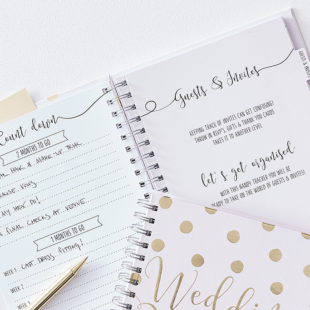 Count down
2 MONTHS TO GO
HAIR & MAKE UP TRIAL
MY HEN DO!
FINAL CHECKS AT VENUE
1 MONTHS TO GO
WEEK 1 LAST DRESS FITTING!
WEEK 2
WEEK 3
Guests & Invites
KEEPING TRACK OF INVITES CAN GET CONFUSING!
THROW IN RSVP'S, GIFTS & THANK YOU CARDS
TAKES IT TO ANOTHER LEVEL.
let's get organised
WITH THIS HANDY TRACKER YOU WILL BE
READY TO TAKE ON THE WORLD OF GUESTS & INVITES!
GUESTS & INVITES
Wedding